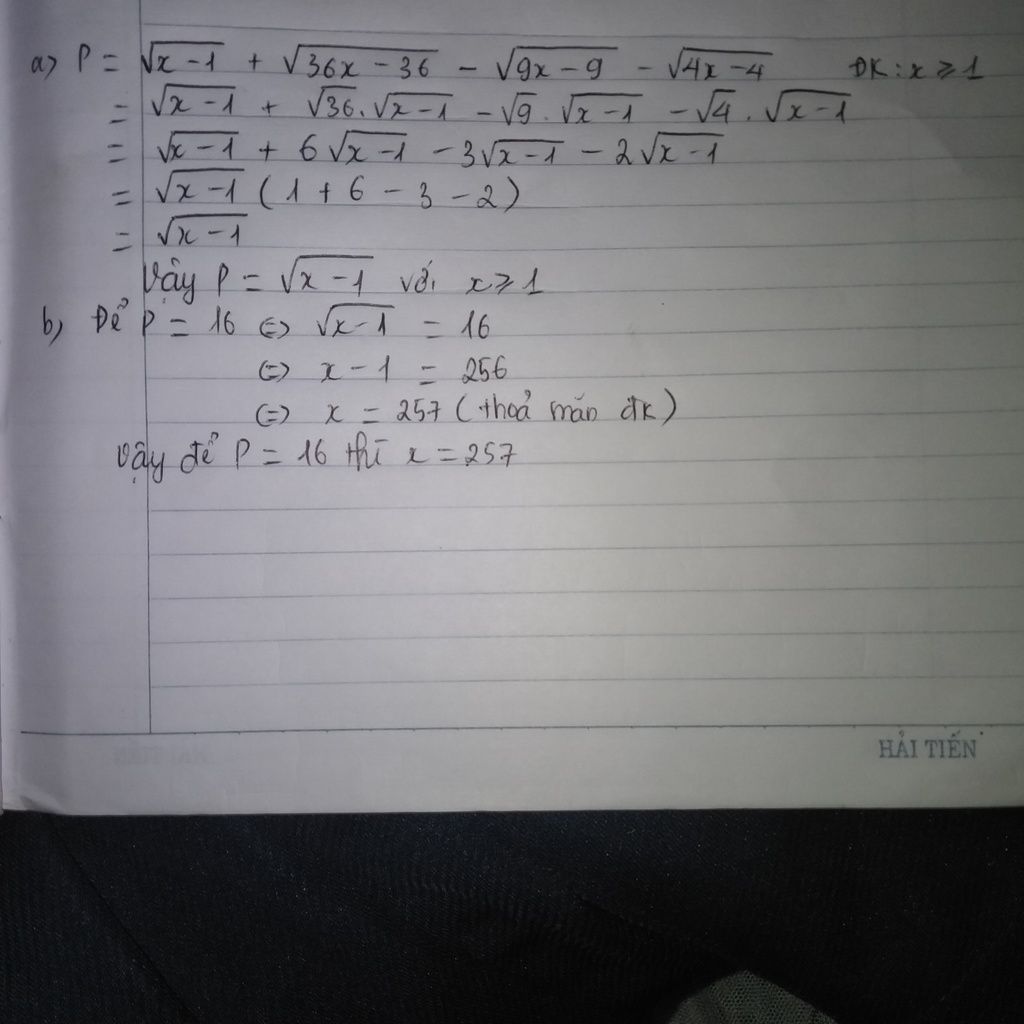 a) P = √x-1 + √36x-36 - √9x-9 - √4x-4 ĐK: x ⩾ 1
= √x-1 + √36.√x-1 - √9.√x-1 - √4.√x-1
= √x-1 + 6√x-1 - 3√x-1 - 2√x-1
= √x-1 (1 + 6 - 3 - 2)
= √x-1
Vậy P = √x-1 với x ⩾ 1
b) Để P = 16 <=> √x-1 = 16
<=> x - 1 = 256
<=> x = 257 (thoả mãn đk)
Vậy để P = 16 thì x = 257
HẢI TIẾN